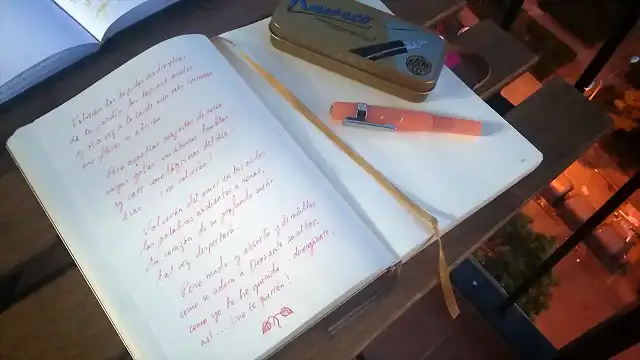 Kaweco
Volverán las tupidas madreselvas
de tu jardín las tapias escalar
y otra vez a la tarde aún más hermosas
sus flores se abrirán
Pero aquellas cuajadas de rocío
cuyas gotas mirábamos temblar
y caer como lágrimas del
días ¡no volverán!
Volverán del amor en tus oídos
las palabras ardientes a sonar,
tu corazón de su profundo sueño
tal vez despertará
Pero mudo y absorto y de rodillas
como se adora a Dios ante su altar,
como yo te he querido... desengáñate,
así... ¡no te querrán!